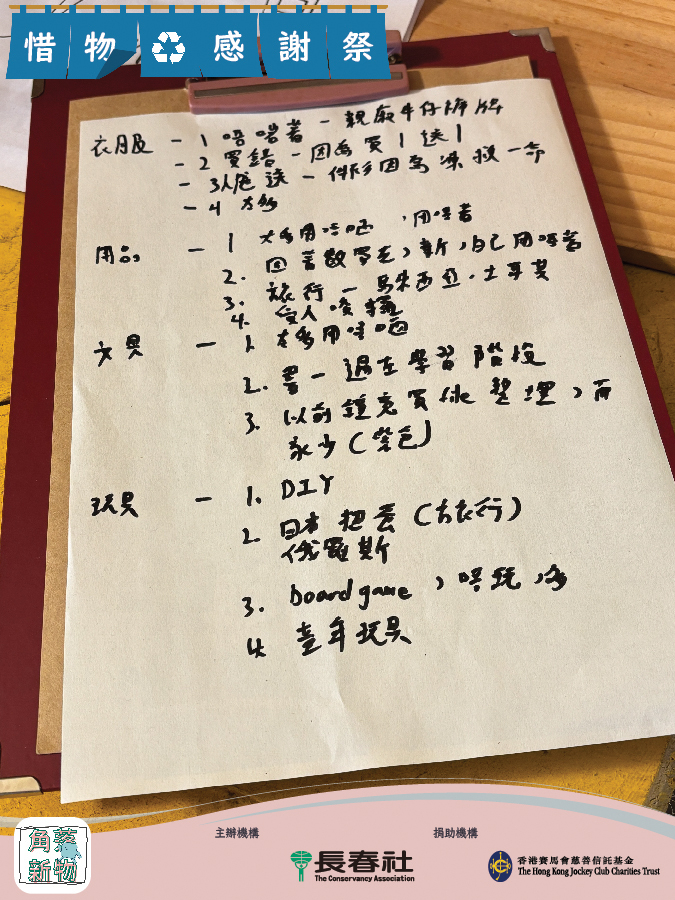 惜物感謝祭
衣服 - 1 唔啱着 - 親戚牛仔褲牌
- 2 買錯 - 因為買1送1
- 3人地送 -
- 4 太多
用品 - 1 太多用唔哂，用唔着
2.
3. 旅行 - 馬來西亞．土耳其
4. 令人
文具 - 1. 太多用唔哂
2. 書 - 過左學習階段
3. 以前鍾意買 整理，而
家少(
玩具 - 1. DIY
2. 日本扭蛋(旅行)
俄羅斯
3. board game，唔玩，多
4. 童年玩具
角落新物
主辦機構
長春社
The Conservancy Association
捐助機構
香港賽馬會慈善信託基金
The Hong Kong Jockey Club Charities Trust